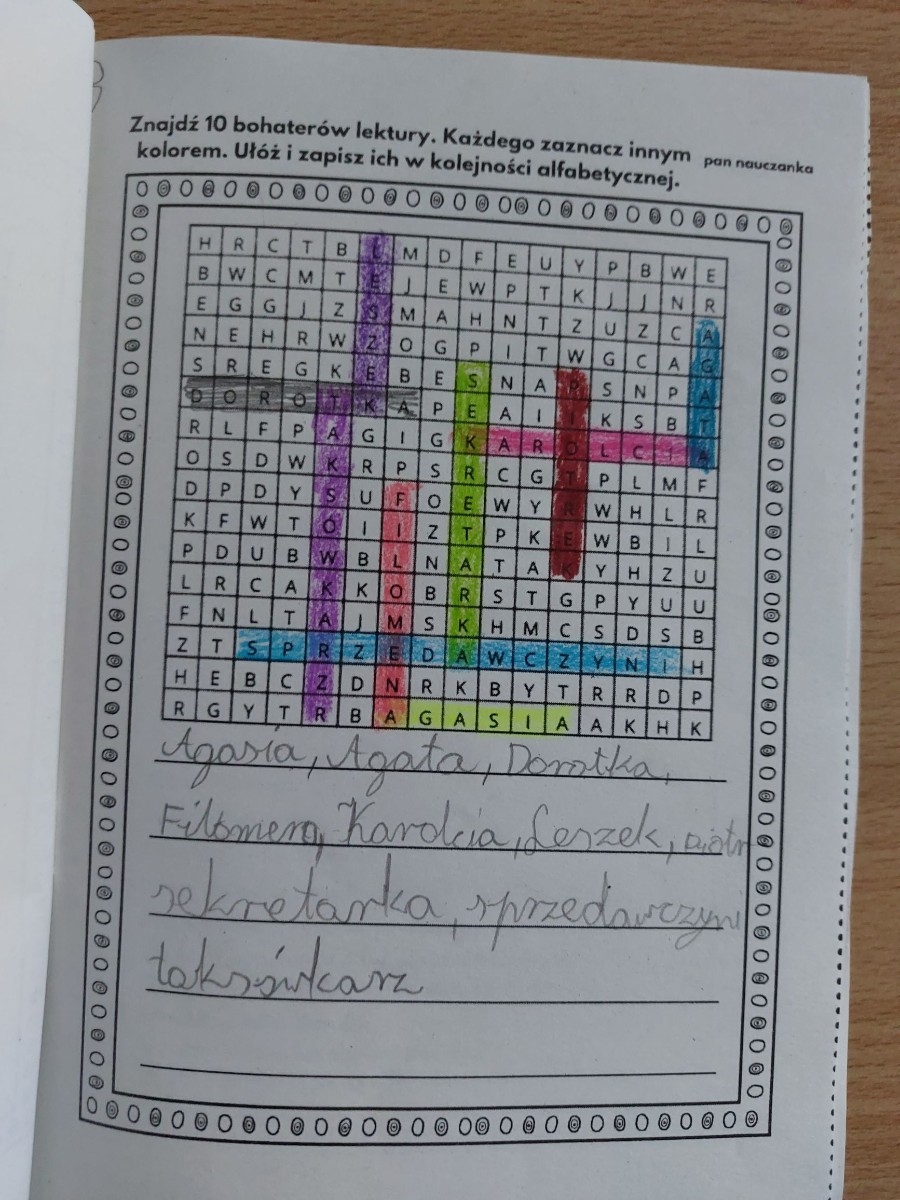 Znajdź 10 bohaterów lektury. Każdego zaznacz innym pan nauczanka
kolorem. Ułóż i zapisz ich w kolejności alfabetycznej.
H R C T B L M D F E U Y P B W E
B W C M T E J E W P T K J J N R
E G G J Z S M A H N T Z U Z C A
N E H R W Z O G P I T W G C A G
S R E G K E B E S N A P S N P A
D O R O T K A P E A I I K S B T
R L F P A G I G K A R O L C I A
O S D W K R P S R C G T P L M F
D P D Y S U F O E W Y R W H L R
K F W T O I I Z T P K E W B I L
P D U B W B L N A T A K Y H Z U
L R C A K K O B R S T G P Y U U
F N L T A J M S K H M C S D S B
Z T S P R Z E D A W C Z Y N I H
H E B C Z D N R K B Y T R R D P
R G Y T R B A G A S I A A K H K
Agasia, Agata, Dorotka,
Filomena, Karolcia, Leszek, piotr
sekretarka, sprzedawczyni
taksówkarz